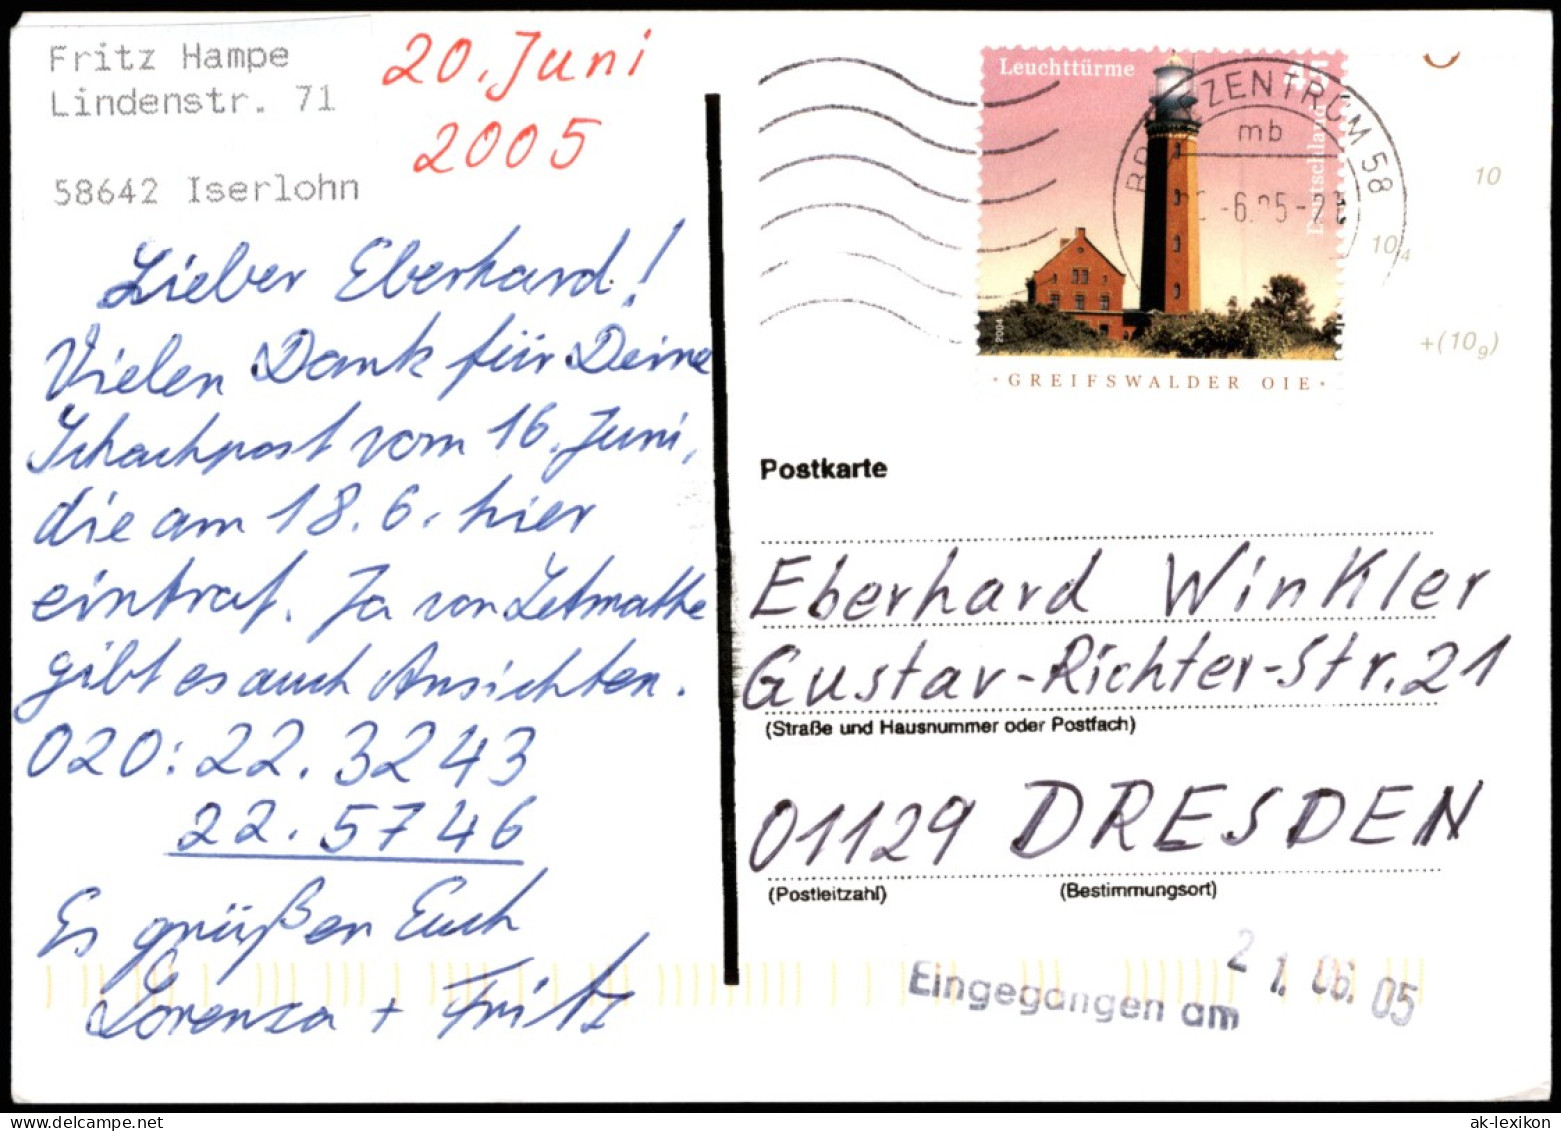 Fritz Hampe
Lindenstr. 71
58642 Iserlohn
20. Juni
2005
Lieber Eberhard!
Vielen Dank für Deine
Schachpost vom 16. Juni,
die am 18.6. hier
eintraf. Ja von Letmathe
gibt es auch Ansichten.
020: 22. 3243
22. 5746
Es grüßen Euch
Lorenza + Fritz
Leuchttürme
45
Deutschland
2004
· GREIFSWALDER OIE ·
BRIEFZENTRUM 58
mb
-6.05-2
10
10,4
+(10g)
Postkarte
Eberhard Winkler
Gustav-Richter-Str. 21
(Straße und Hausnummer oder Postfach)
01129 DRESDEN
(Postleitzahl) (Bestimmungsort)
Eingegangen am 21. 06. 05
ak-lexikon